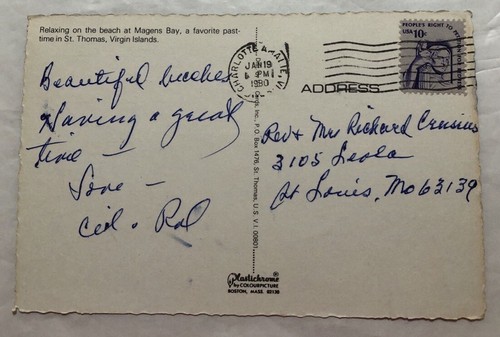 Relaxing on the beach at Magens Bay, a favorite past-
time in St. Thomas, Virgin Islands.
CHARLOTTE AMALIE VI
JAN 19
PM
1980
PEOPLE'S RIGHT TO PETITION FOR REDRESS
USA 10c
ADDRESS
Beautiful beaches
Having a great
time —
Love —
Rev & Mrs Richard
3105 Leola
St Louis, Mo 63139
Inc., P.O. Box 1476, St. Thomas, U.S.V.I. 00801
Plastichrome
by COLOURPICTURE
BOSTON, MASS. 02130